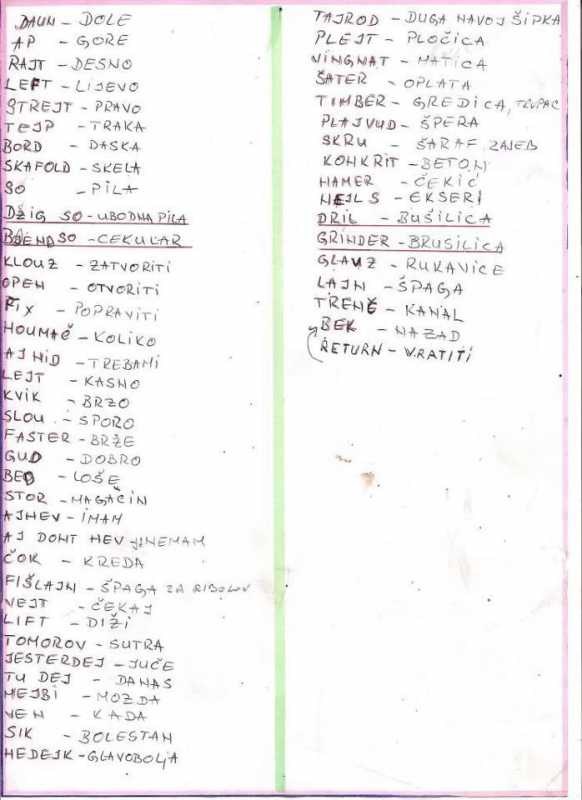 DAUN - DOLE
AP - GORE
RAJT - DESNO
LEFT - LIJEVO
STREJT - PRAVO
TEJP - TRAKA
BORD - DASKA
SKAFOLD - SKELA
SO - PILA
DŽIG SO - UBODNA PILA
BEND SO - CEKULAR
KLOUZ - ZATVORITI
OPEN - OTVORITI
FIX - POPRAVITI
HOUMAČ - KOLIKO
AJ NID - TREBAMI
LEJT - KASNO
KVIK - BRZO
SLOU - SPORO
FASTER - BRŽE
GUD - DOBRO
BED - LOŠE
STOR - MAGAČIN
AJHEV - IMAM
AJ DONT HEV - NEMAM
ČOK - KREDA
FIŠLAJN - ŠPAGA ZA RIBOLOV
VEJT - ČEKAJ
LIFT - DIŽI
TOMOROV - SUTRA
JESTERDEJ - JUČE
TU DEJ - DANAS
MEJBI - MOZDA
VEN - KADA
SIK - BOLESTAN
HEDEJK - GLAVOBOLJA
TAJROD - DUGA NAVOJ ŠIPKA
PLEJT - PLOČICA
VINGNAT - MATICA
ŠATER - OPLATA
TIMBER - GREDICA, TRUPAC
PLAJVUD - ŠPERA
SKRU - ŠARAF, ZAJEB
KONKRIT - BETON
HAMER - ČEKIĆ
NEJLS - EKSERI
DRIL - BUŠILICA
GRINDER - BRUSILICA
GLAUZ - RUKAVICE
LAJN - ŠPAGA
TRENČ - KANAL
BEK - NAZAD
RETURN - VRATITI